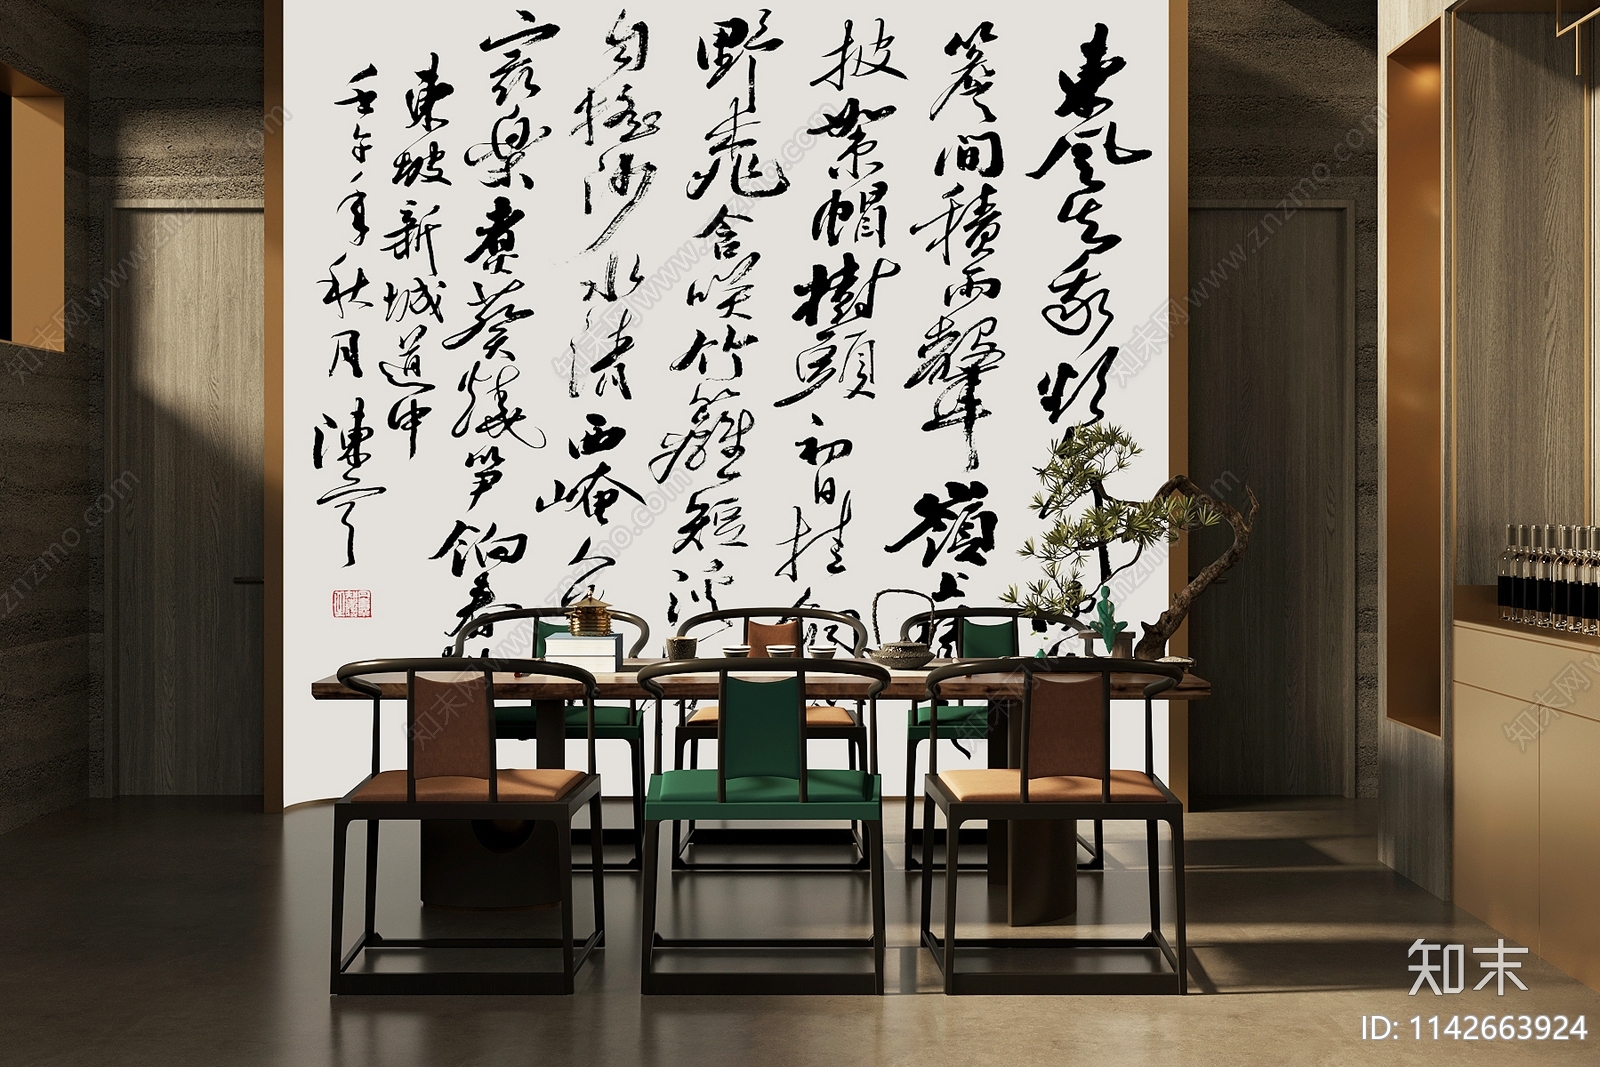 東風知我欲
簷間積雨聲嶺上
披絮帽樹頭初日挂銅
野桃含笑竹籬短溪
自搖沙水清西崦人家
最樂煮葵燒笋餉春
東坡新城道中
壬午年秋月陳
知末网www.znzmo.com
知末
ID: 1142663924